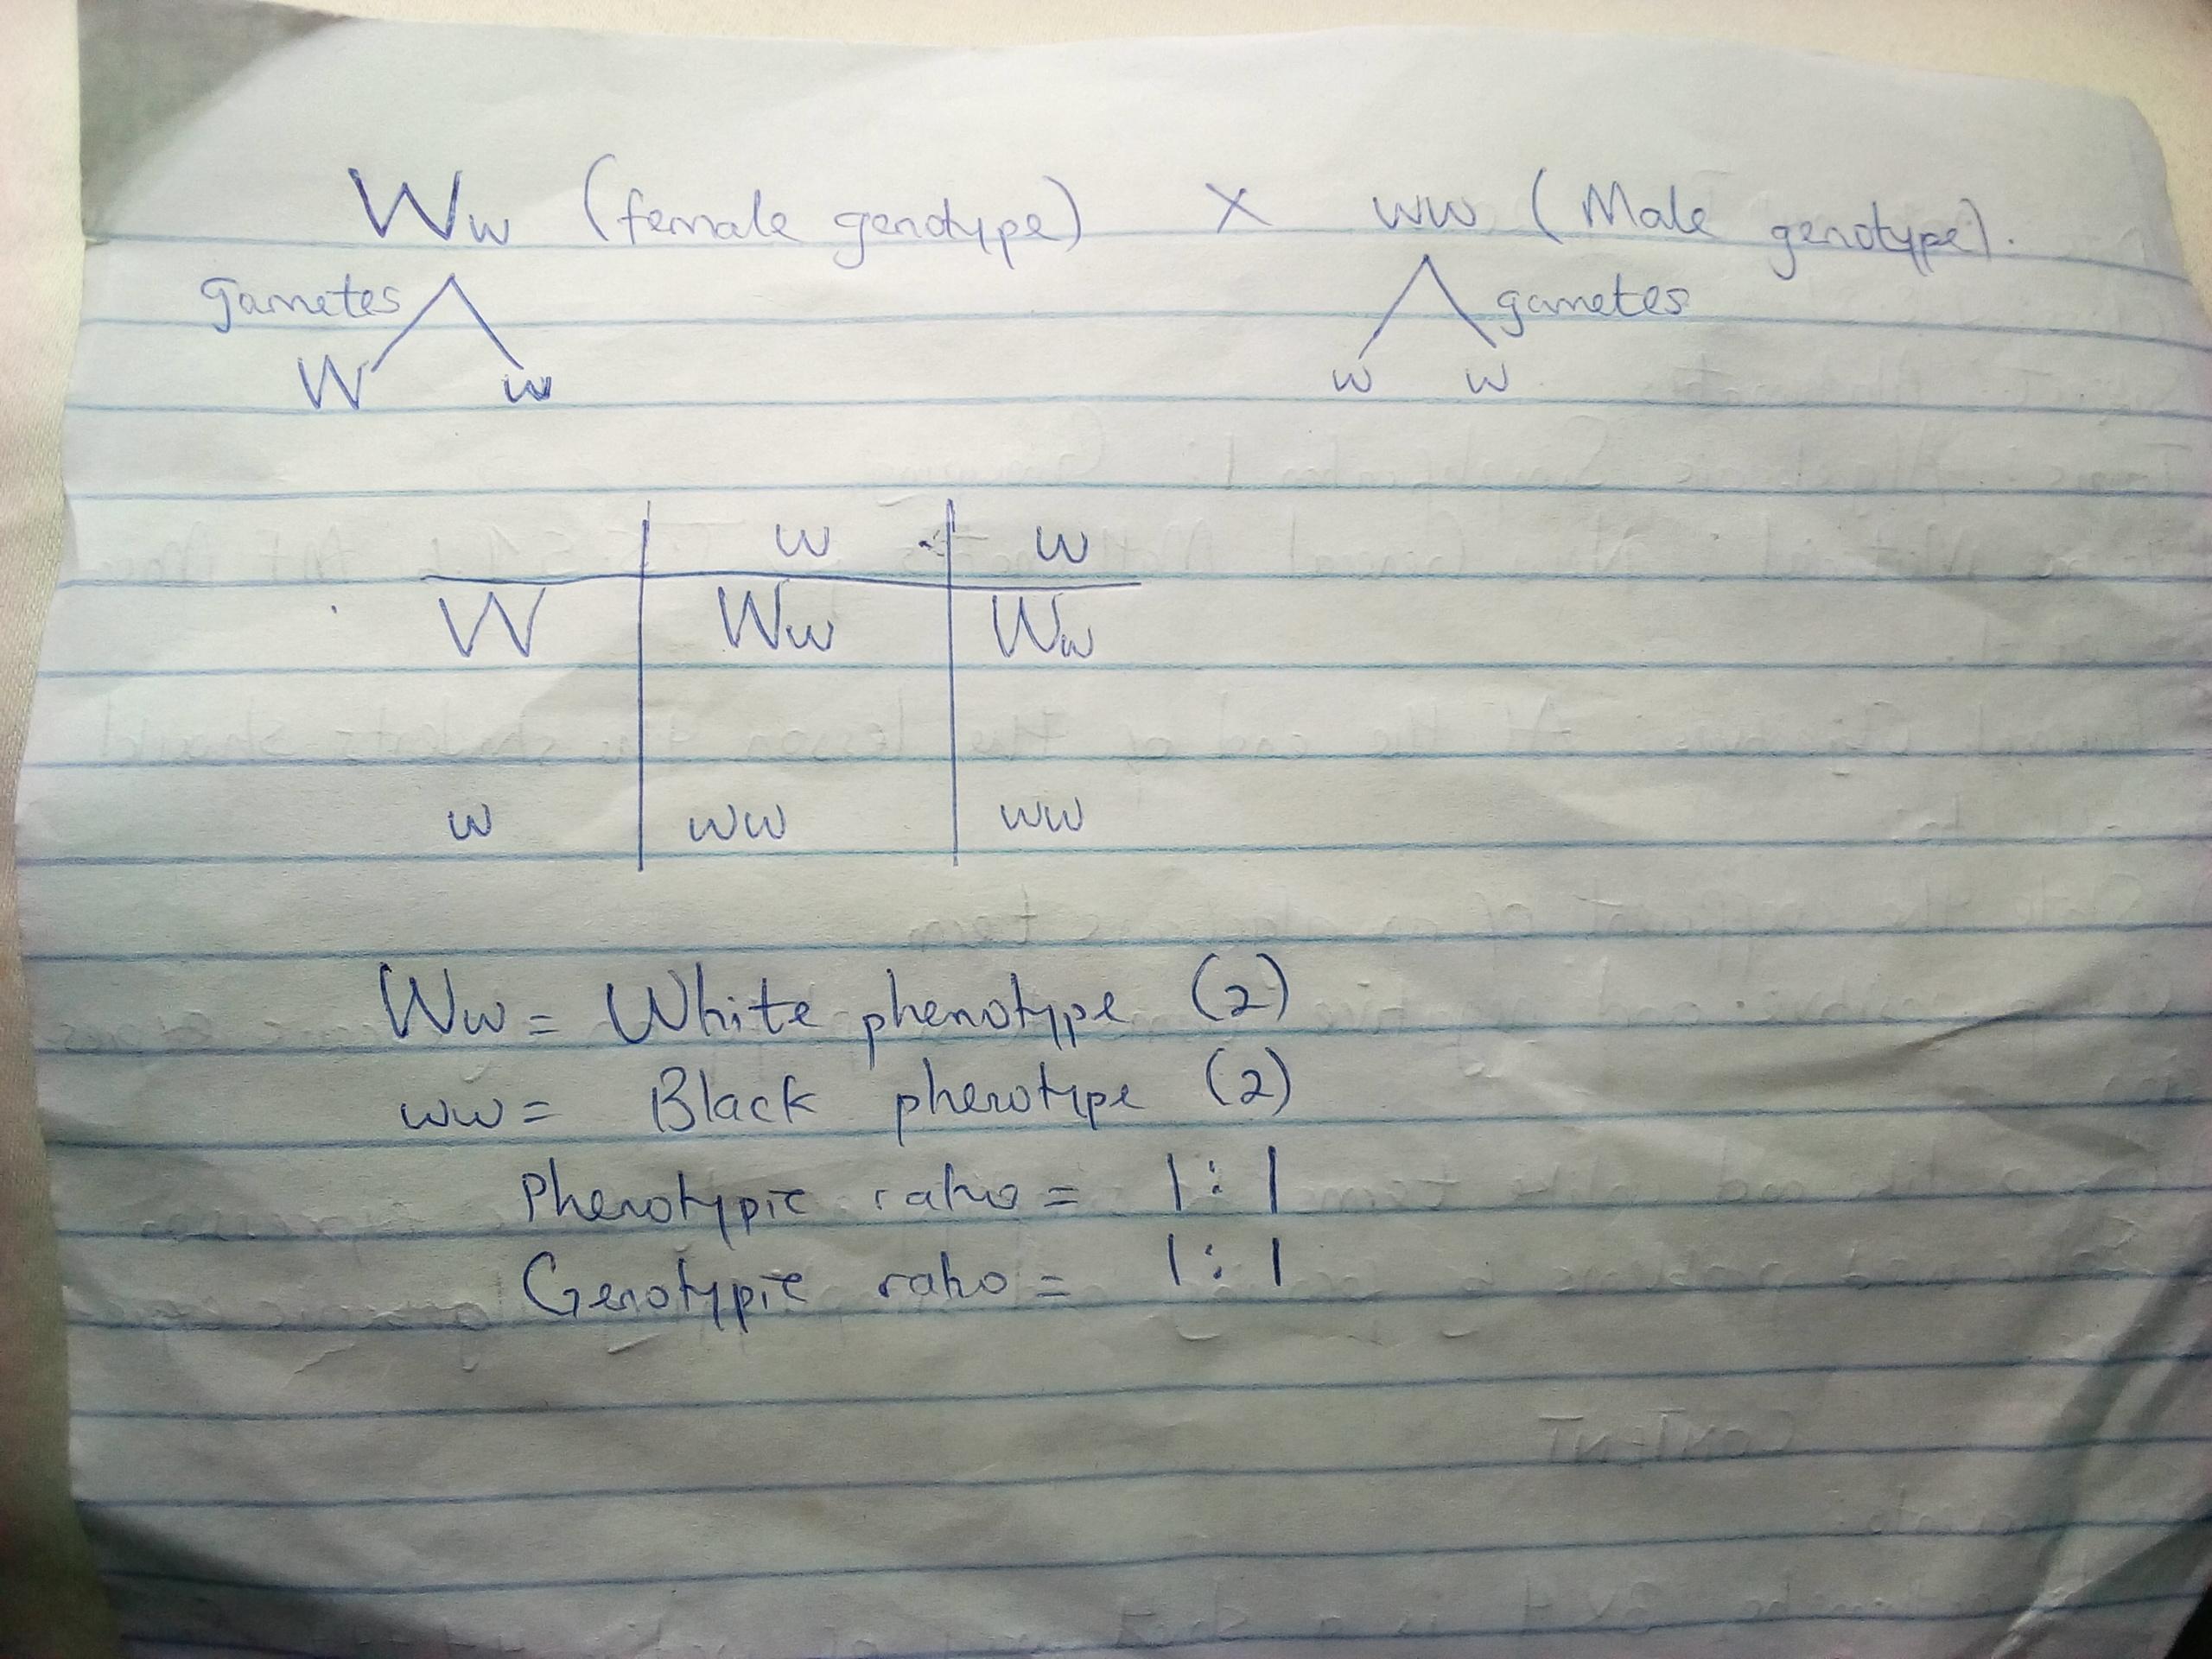 Ww (female genotype) X ww (Male genotype).
gametes gametes
W w w w
w w
W Ww Ww
w ww ww
Ww = White phenotype (2)
ww = Black phenotype (2)
Phenotypic ratio = 1:1
Genotypic ratio = 1:1